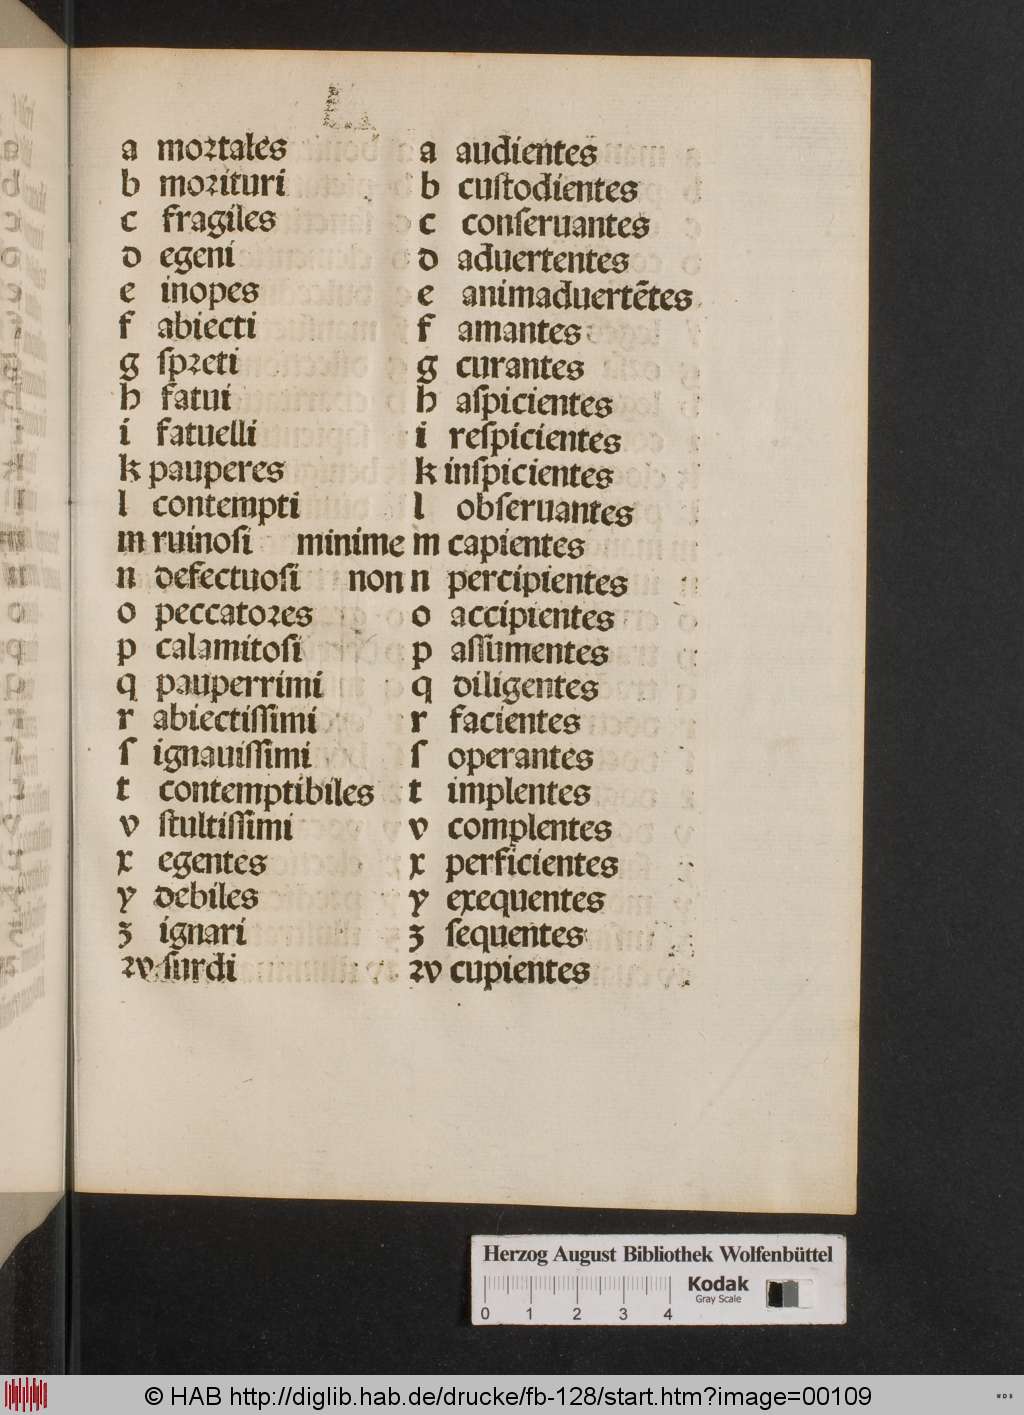 a mortales a audientes
b morituri b cuſtodientes
c fragiles c conſeruantes
d egeni d aduertentes
e inopes e animaduertẽtes
f abiecti f amantes
g ſpreti g curantes
h fatui h aſpicientes
i fatuelli i reſpicientes
k pauperes k inſpicientes
l contempti l obſeruantes
m ruinoſi minime m capientes
n defectuoſi non n percipientes
o peccatores o accipientes
p calamitoſi p aſſumentes
q pauperrimi q diligentes
r abiectiſſimi r facientes
ſ ignauiſſimi ſ operantes
t contemptibiles t implentes
v ſtultiſſimi v complentes
x egentes x perficientes
y debiles y exequentes
ʒ ignari ʒ ſequentes
ꝛv ſurdi ꝛv cupientes
Herzog August Bibliothek Wolfenbüttel
Kodak
Gray Scale
0 1 2 3 4
© HAB http://diglib.hab.de/drucke/fb-128/start.htm?image=00109